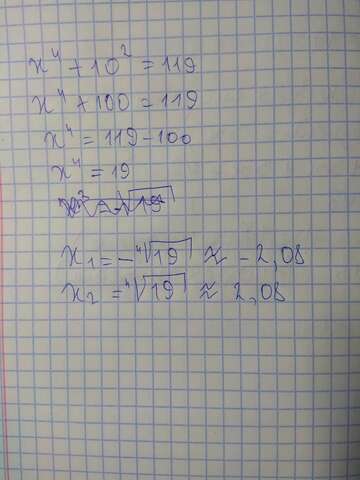 x⁴ + 10² = 119
x⁴ + 100 = 119
x⁴ = 119 - 100
x⁴ = 19
x₁ = -⁴√19 ≈ -2,08
x₂ = ⁴√19 ≈ 2,08